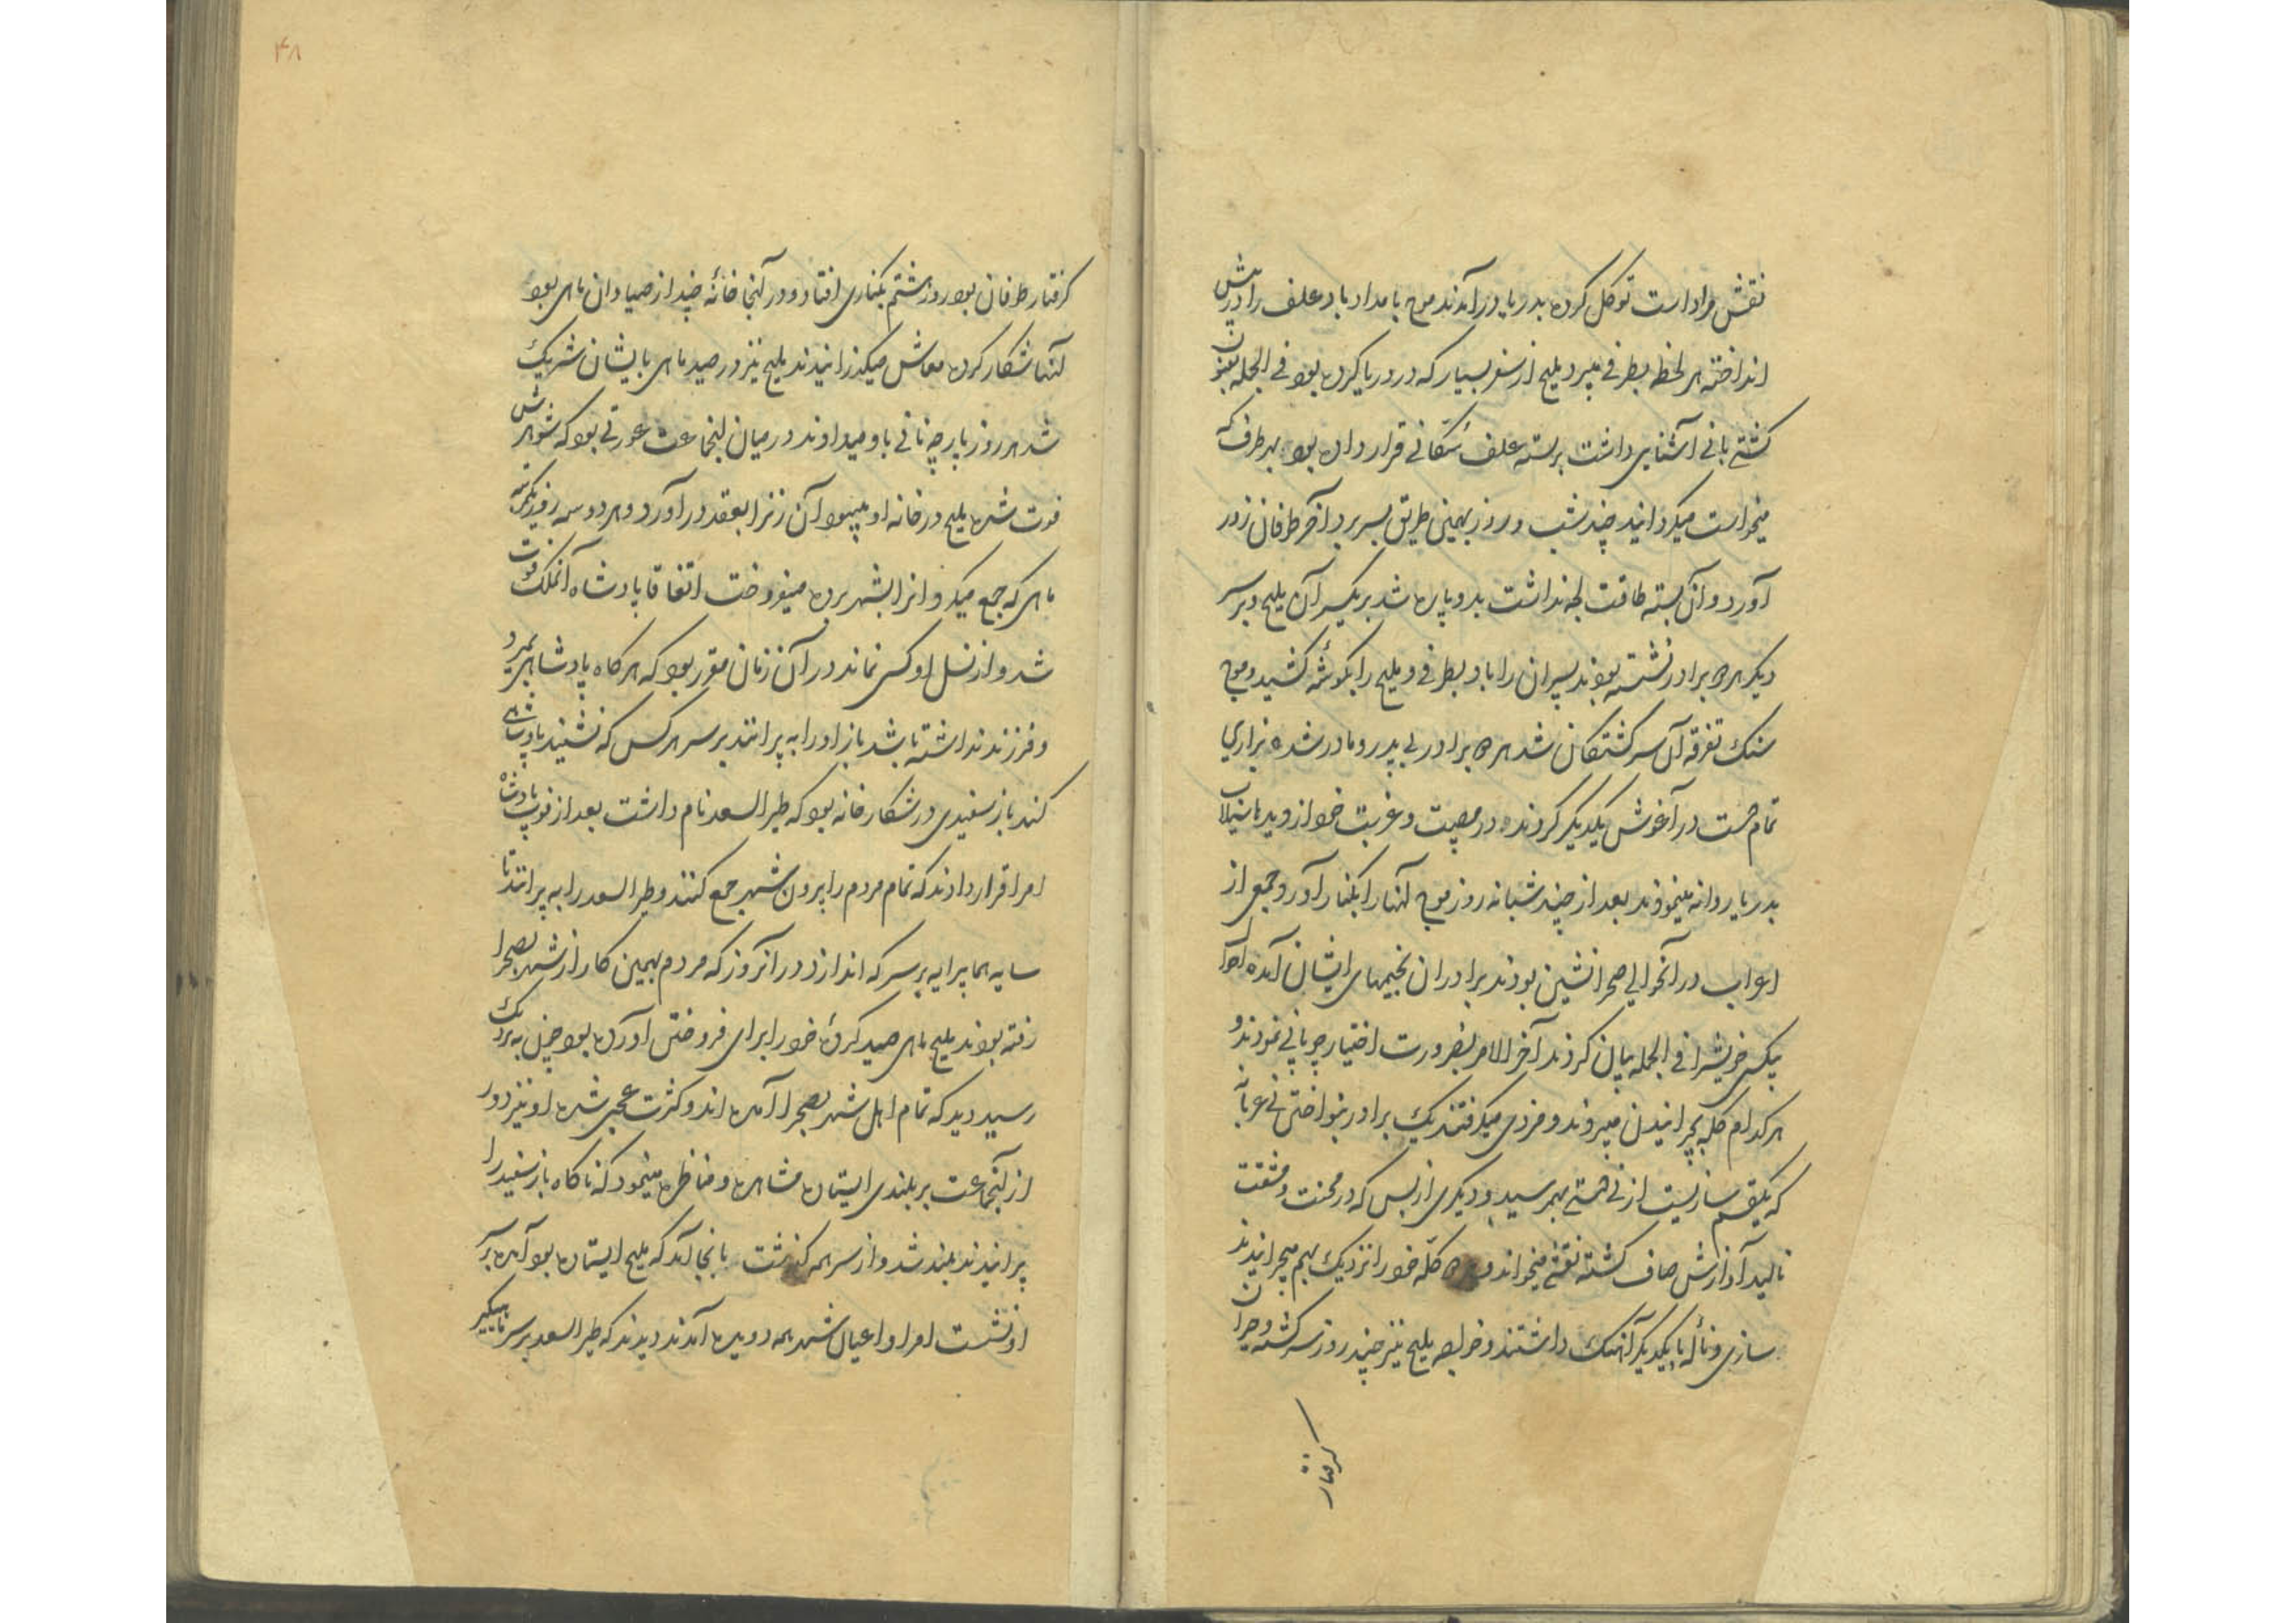 نقش مراد است توکل کرده بدریا درآمدند موج بامداد باد علف را در پیش
انداخته هر لحظه بطرفی میبرد یلیح از سفر بسیار که در دریا کرده بود فی الجمله بفنون
کشتی بانی آشنایی داشت بر بسته علف سکانی قرار داده بود بهر طرف که
میخواست میکردانید چند شب و روز بهمین طریق بسر برد آخر طوفان زور
آورد و آن بسته طاقت لجه نداشت بدو پاره شد بر یکسر آن یلیح و بر سر
دیکر هر دو برادر نشسته بودند پسران را باد بطرفی و یلیح را بکوشه کشید و موج
سنک تفرقه آن سرکشتکان شد هر دو برادر بی پدر و مادر شده بزاری
تمام دست در آغوش یکدیکر کردند در مصیبت و غربت خود از دیدها سیلاب
بدریا روانه مینمودند بعد از چند شبانه روز موج آنها را بکنار آورد و جمعی از
اعراب در آنحوالی صحرا نشین بودند برادران بخیمهای ایشان آمده احوال
بیکسی خویش را فی الجمله بیان کردند آخر الامر بضرورت اختیار چوپانی نمودند و
هر کدام کله بچرانیدن میبردند و مزدی میکرفتند یک برادر بنواختن نی عربانه
که یکقسم سازیست از نی دستی بهم رسید و دیکری از بس که در محنت و مشقت
نالید آوازش صاف کشته نقشی میخواند و هر دو کله خود را نزدیک بهم میچرانیدند
سازی و ناله با یکدیکر آهنک داشتند و خواجه یلیح نیز چند روز سرکشته و حیران
کرفتار
۴۸
کرفتار طوفان بود روز هشتم بکناری افتاد و در آنجا خانهٔ چند از صیادان ماهی بود
آنها شکار کرده معاش میکذرانیدند یلیح نیز در صید ماهی با ایشان شریک
شد هر روز پارچه نانی باو میدادند در میان آنجماعت عورتی بود که شوهرش
فوت شده یلیح در خانه او میبود آن زن را بعقد درآورد و هر دو سه روز یکمرتبه
ماهی که جمع میکرد انرا بشهر برده میفروخت اتفاقا پادشاه آنملک فوت
شد و از نسل او کسی نماند در آن زمان مقرر بود که هر کاه پادشاهی بمیرد
و فرزند نداشته باشد باز او را به پرانند بر سر هر کس که نشیند پادشاهی
کند باز سفیدی در شکار خانه بود که طیر السعد نام داشت بعد از فوت پادشاه
امرا قرار دادند که تمام مردم را بیرون شهر جمع کنند و طیر السعد را به پرانند تا
سایه هما پرایه بر سر که اندازد در آنروز که مردم بهمین کار از شهر بصحرا
رفته بودند یلیح ماهی صید کردهٔ خود را برای فروختن آورده بود چون به نزدیک
رسید دید که تمام اهل شهر بصحرا آمده اند و کثرت عجبی شده او نیز دور
از آنجماعت بر بلندی ایستاده مشاهده و مناظره مینمود که ناکاه باز سفید را
پرانیدند بلند شد و از سر همه کذشت بانجا آمد که یلیح ایستاده بود آمده بر سر
او نشست امرا و اعیان شهر همه دویده آمدند دیدند که طیر السعد بر سر ماهیکیر